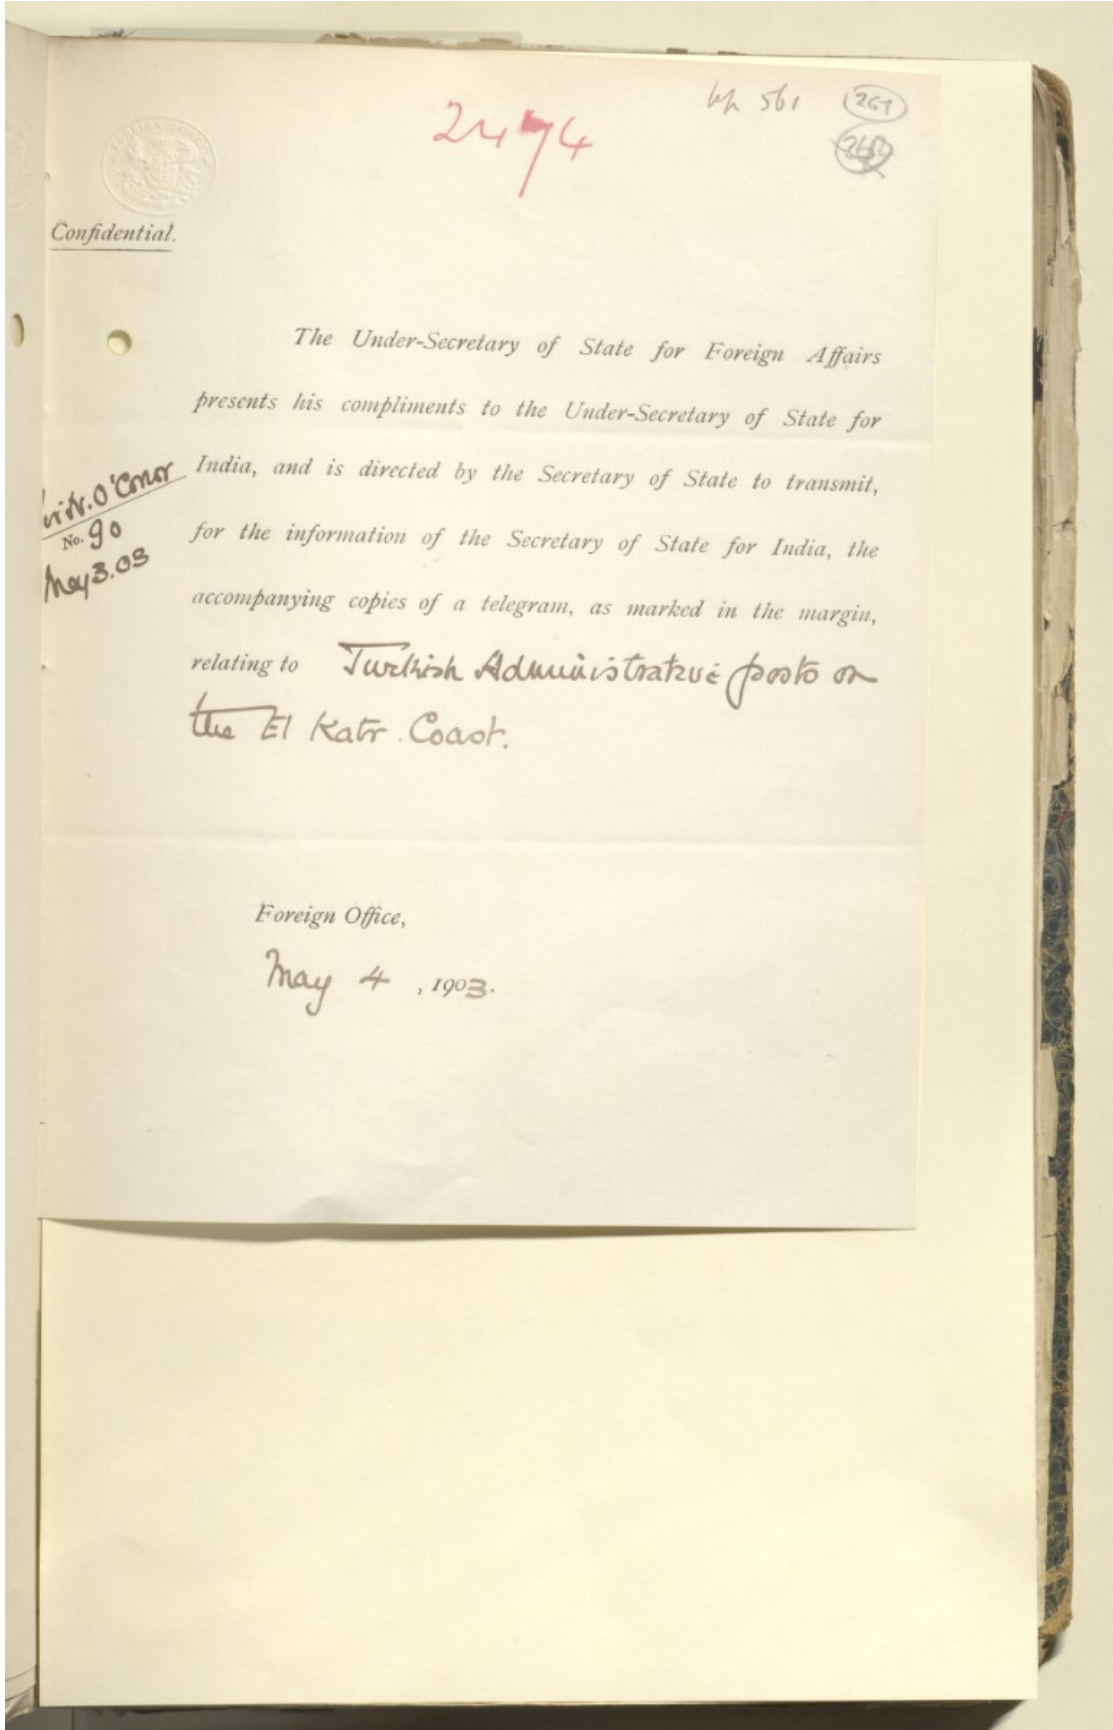 2474
561
267
Confidential.
The Under-Secretary of State for Foreign Affairs
presents his compliments to the Under-Secretary of State for
India, and is directed by the Secretary of State to transmit,
for the information of the Secretary of State for India, the
accompanying copies of a telegram, as marked in the margin,
relating to Turkish Administrative posts on
the El Katr Coast.
N. O'Conor
No. 90
May 3.03
Foreign Office,
May 4, 1903.